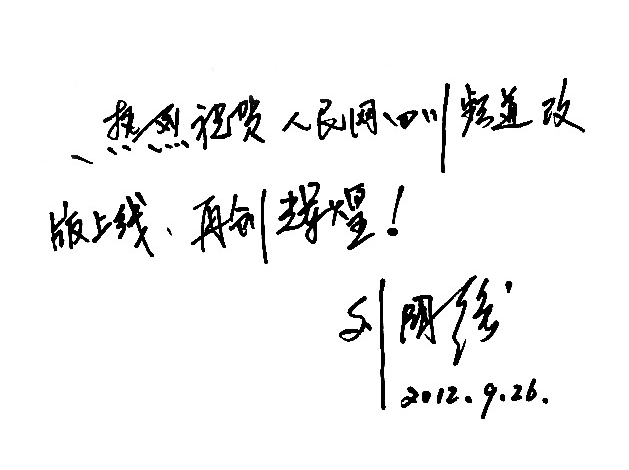 热烈祝贺人民网四川频道改
版上线、再创辉煌！
刘
2012.9.26.